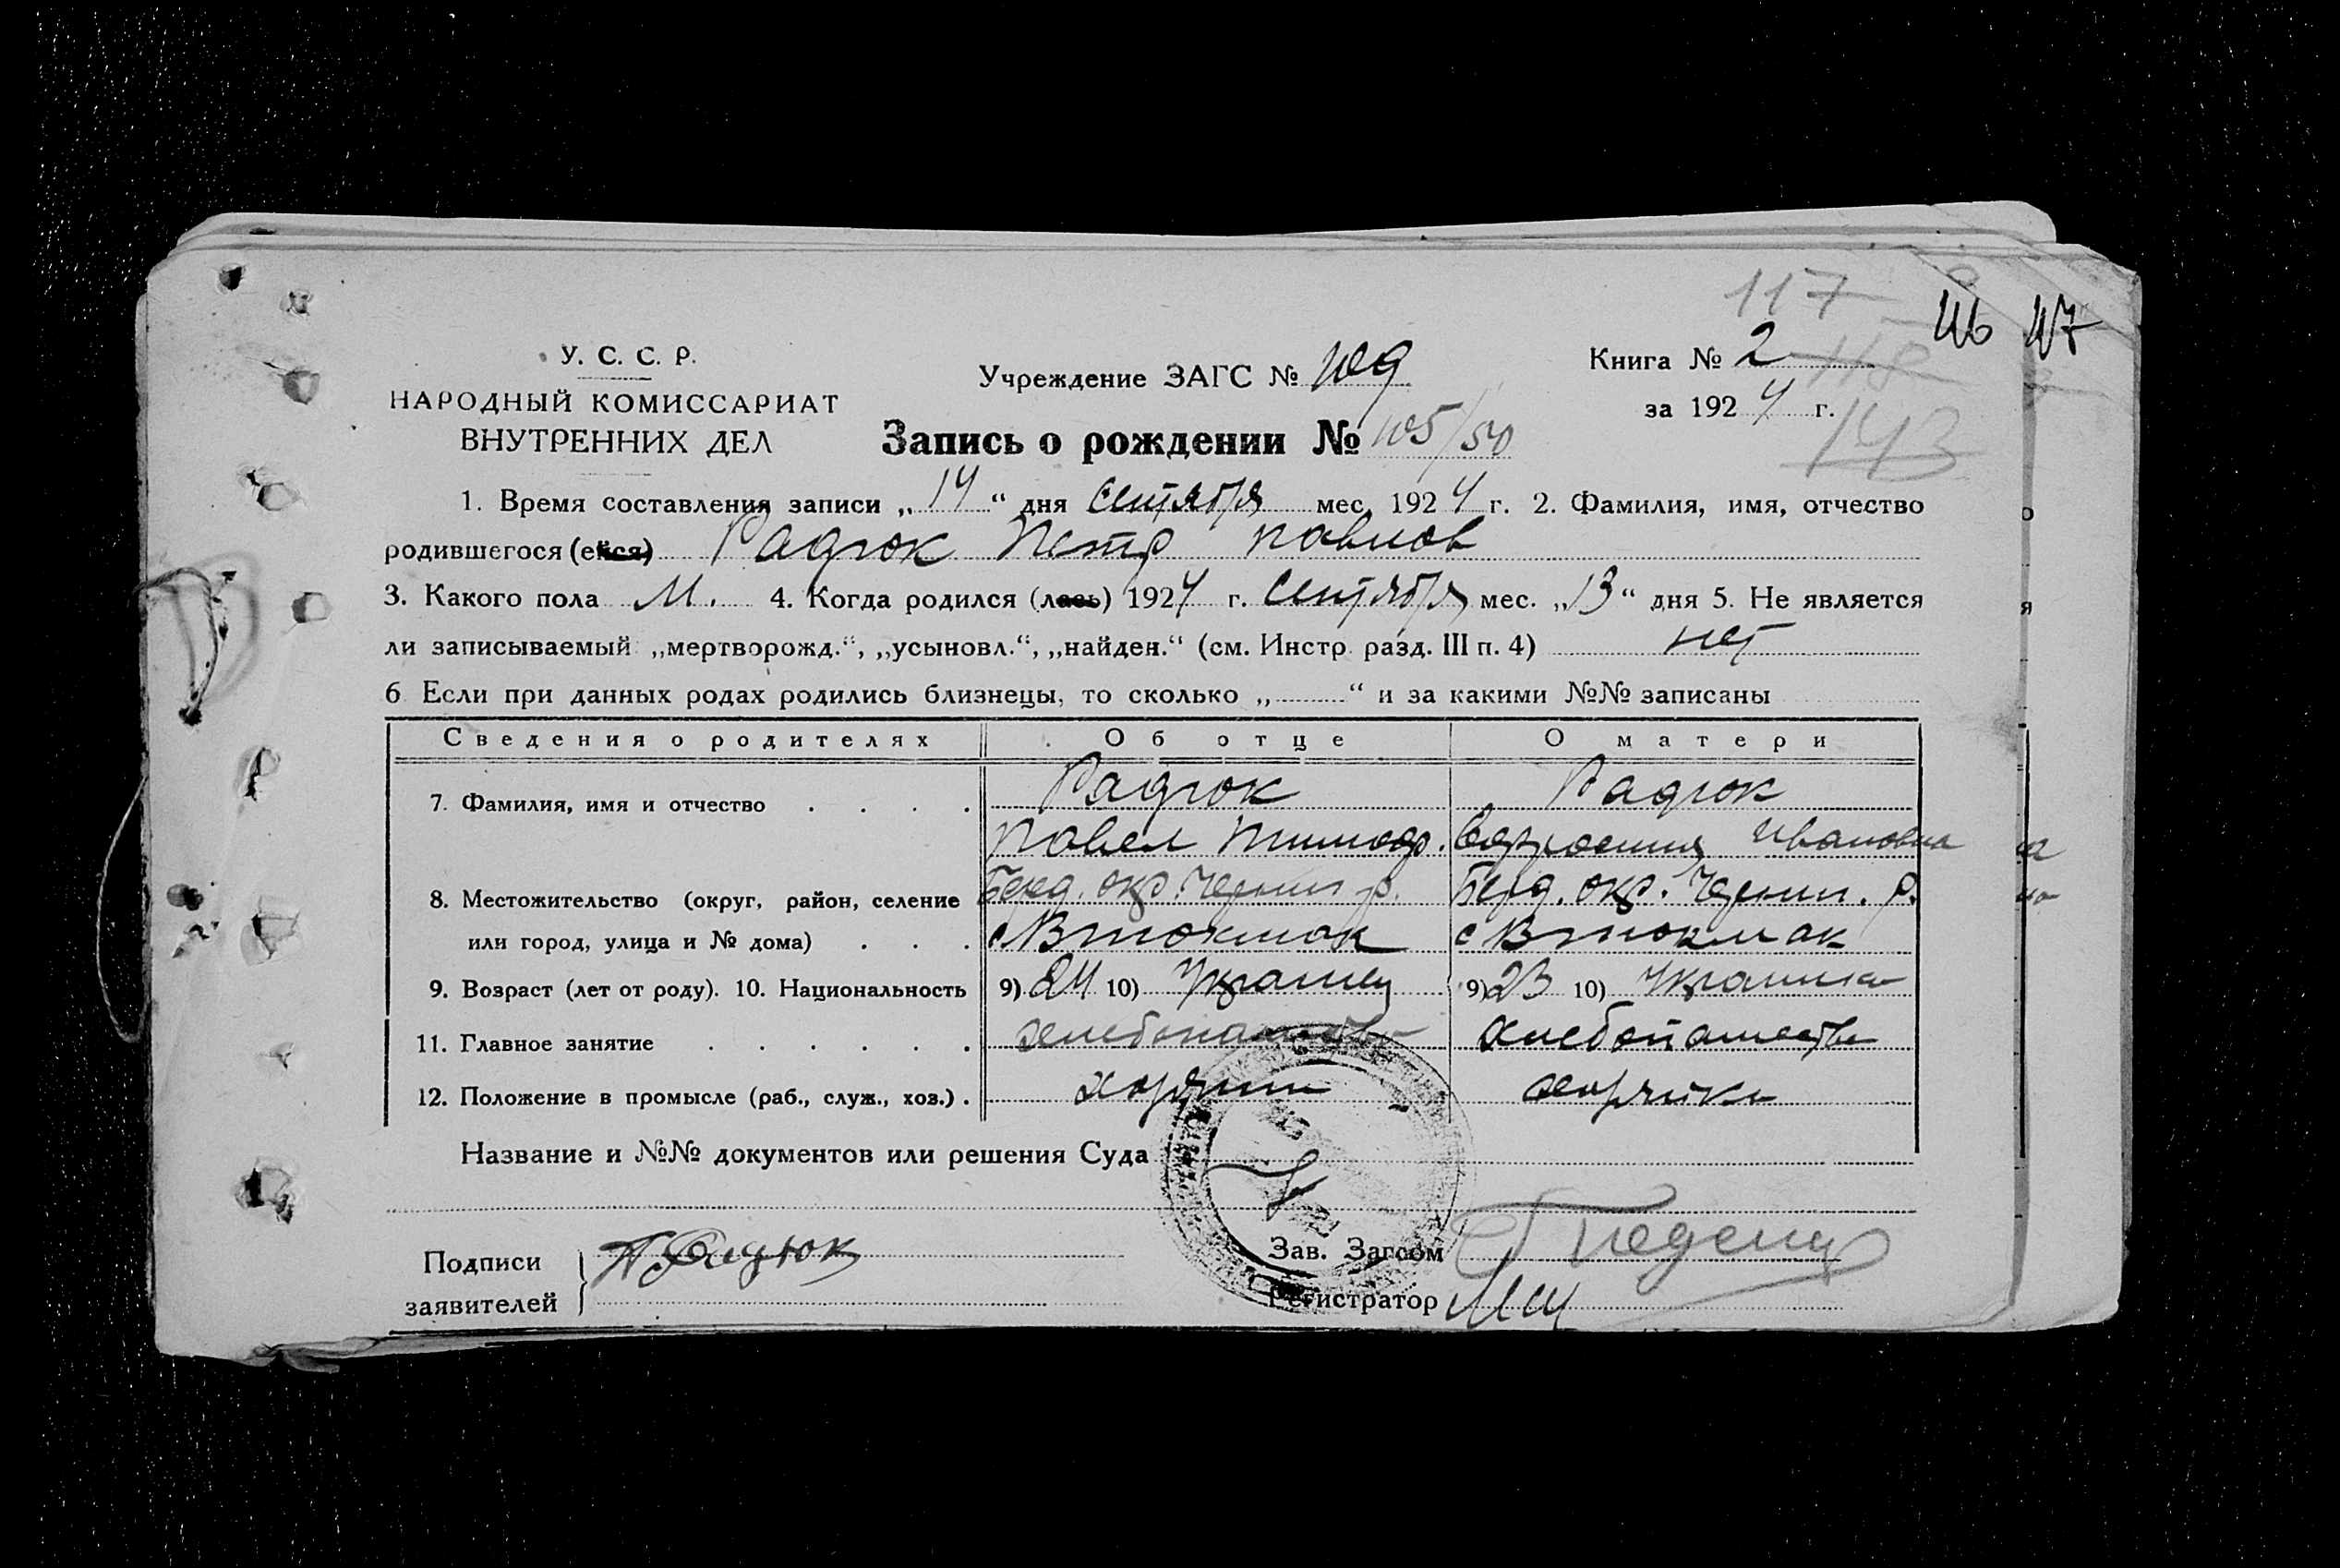 117
116 117
У. С. С. Р.
НАРОДНЫЙ КОМИССАРИАТ
ВНУТРЕННИХ ДЕЛ
Учреждение ЗАГС №
Книга № 2
118
за 1924 г.
143
Запись о рождении № 105/50
1. Время составления записи „14“ дня сентября мес. 1924 г. 2. Фамилия, имя, отчество
родившегося (ейся) Радюк Петр Павлов
3. Какого пола М. 4. Когда родился (лась) 1924 г. Сентября мес. „13“ дня 5. Не является
ли записываемый „мертворожд.“, „усыновл.“, „найден.“ (см. Инстр. разд. III п. 4) нет
6 Если при данных родах родились близнецы, то сколько „ “ и за какими №№ записаны
Сведения о родителях Об отце О матери
7. Фамилия, имя и отчество Радюк Радюк
Павел Тимофр. Ивановна
8. Местожительство (округ, район, селение Берд. окр. р. Берд. окр. р.
или город, улица и № дома) с Втокмак с Втокмак
9. Возраст (лет от роду). 10. Национальность 9) 24 10) Украинец 9) 23 10) Украинка
11. Главное занятие хлебопашество хлебопашество
12. Положение в промысле (раб., служ., хоз.)
Название и №№ документов или решения Суда
Подписи
заявителей
П Радюк
Зав. Загсом
Регистратор